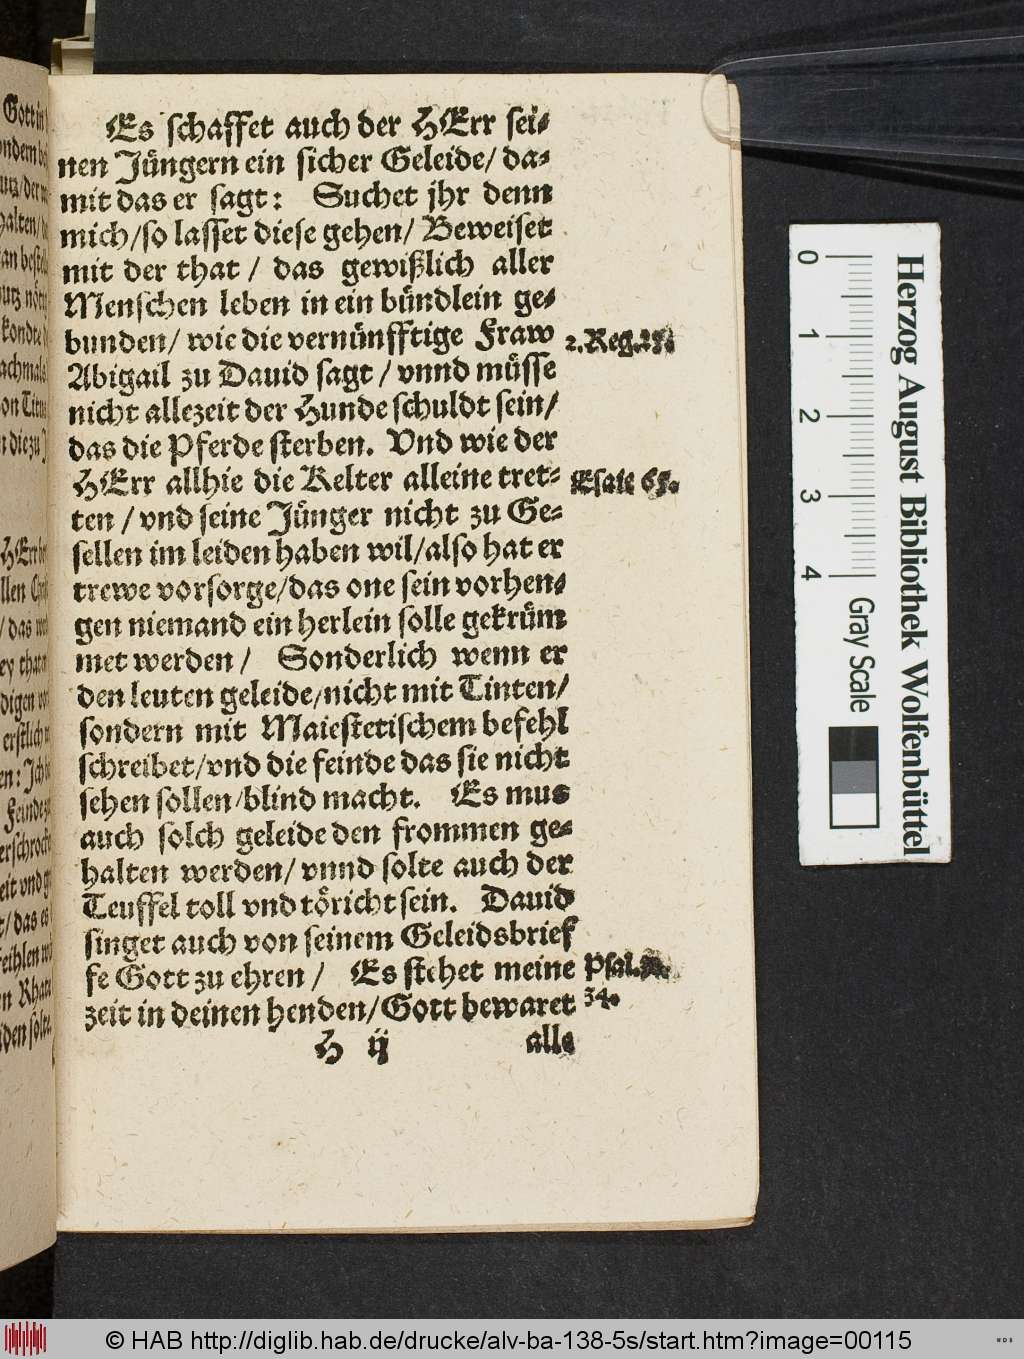 Es schaffet auch der HErr sei-
nen Jüngern ein sicher Geleide/ da-
mit das er sagt: Suchet jhr denn
mich/so lasset diese gehen/ Beweiset
mit der that / das gewißlich aller
Menschen leben in ein bündlein ge-
bunden/ wie die vernünfftige Fraw
2. Reg.
Abigail zu Dauid sagt / vnnd müsse
nicht allezeit der Hunde schuldt sein/
das die Pferde sterben. Vnd wie der
HErr allhie die Kelter alleine tret-
Esaie 65.
ten / vnd seine Jünger nicht zu Ge-
sellen im leiden haben wil/also hat er
trewe vorsorge/das one sein vorhen-
gen niemand ein herlein solle gekrüm
met werden / Sonderlich wenn er
den leuten geleide/nicht mit Tinten/
sondern mit Maiestetischem befehl
schreibet/vnd die feinde das sie nicht
sehen sollen/blind macht. Es mus
auch solch geleide den frommen ge-
halten werden/ vnnd solte auch der
Teuffel toll vnd töricht sein. Dauid
singet auch von seinem Geleidsbrief
fe Gott zu ehren / Es stehet meine
Psal.
zeit in deinen henden/Gott bewaret
34.
H ij alle
0 1 2 3 4
Gray Scale
Herzog August Bibliothek Wolfenbüttel
© HAB http://diglib.hab.de/drucke/alv-ba-138-5s/start.htm?image=00115